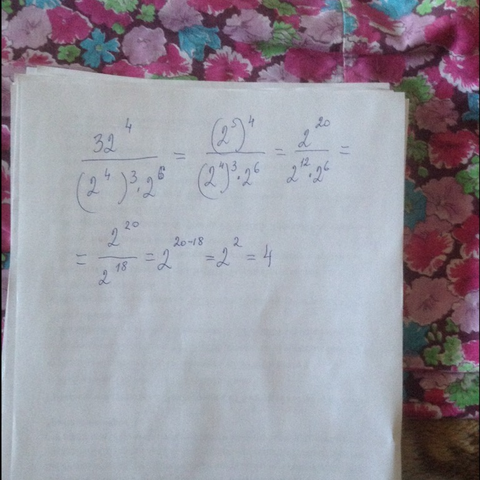 \frac{32^4}{(2^4)^3 \cdot 2^6} = \frac{(2^5)^4}{(2^4)^3 \cdot 2^6} = \frac{2^{20}}{2^{12} \cdot 2^6} =
= \frac{2^{20}}{2^{18}} = 2^{20-18} = 2^2 = 4